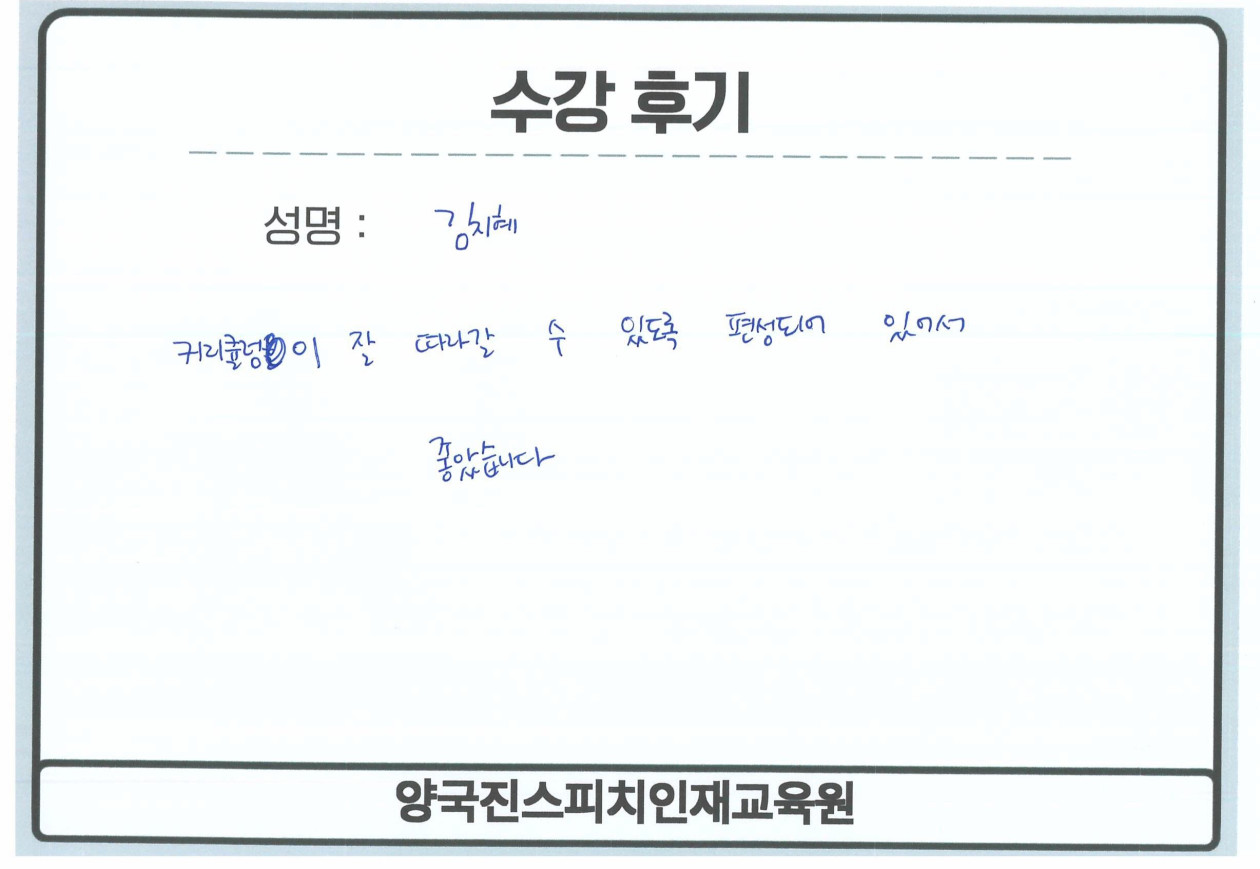 수강 후기
성명 : 김지혜
커리큘럼이 잘 따라갈 수 있도록 편성되어 있어서
좋았습니다
양국진스피치인재교육원